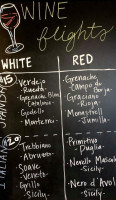 WINE
flights
WHITE
RED
$15
SPANISH
Verdejo
Rueda
Grenache Blanc
Catalunya
Godello
Monterrei
Grenache
Campo de Borja
Graciano
Rioja
Monastrell
Jumilla
$20
ITALIAN
Trebbiano
Abruzzo
Soave
Veneto
Grillo
Sicily
Primitivo
Puglia
Nerello Mascalese
Sicily
Nero d'Avola
Sicily